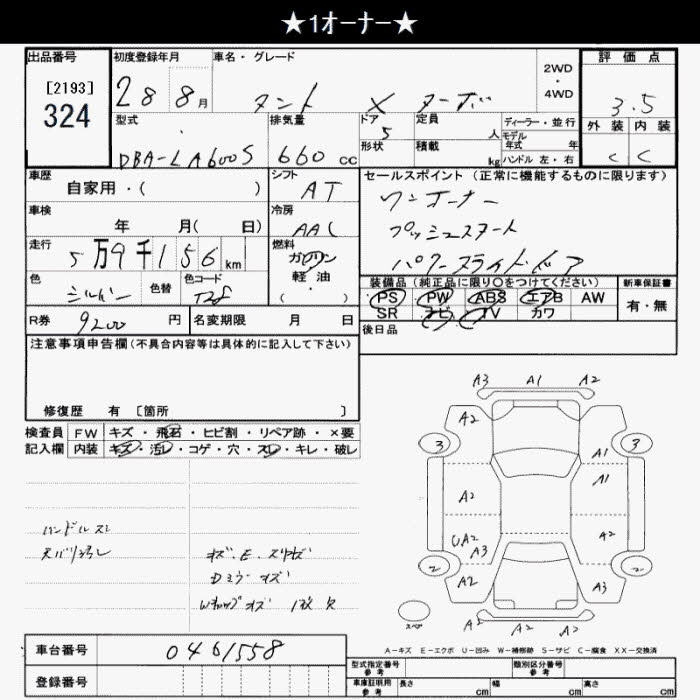 ★1オーナー★
出品番号
[2193]
324
初度登録年月
28 8月
車名・グレード
タント X ターボ
2WD
・
4WD
評価点
3.5
外装 内装
C C
型式
DBA-LA600S
排気量
660 cc
ドア
5
形状
定員
人
積載
kg
ディーラー・並行
モデル
年式 年
ハンドル 左・右
車歴
自家用・( )
シフト
AT
車検
年 月( 日)
冷房
AAC
走行
5万9千156km
燃料
ガソリン
軽油
( ・ )
色
シルバー
色替
色コード
R券
9200円
名変期限 月 日
セールスポイント (正常に機能するものに限ります)
ワンオーナー
プッシュスタート
パワースライドドア
装備品(純正品に限り○をつけてください)
PS PW ABS エアB AW
SR ナビ TV カワ
新車保証書
有・無
後日品
注意事項申告欄(不具合内容等は具体的に記入して下さい)
修復歴 有 〔箇所 〕
検査員
記入欄
FW キズ・飛石・ヒビ割・リペア跡・×要
内装 キズ・汚レ・コゲ・穴・スレ・キレ・破レ
ハンドルスレ
天バリ汚レ
キズ・E・スリキズ
Dミラーキズ
Wキャップキズ 1枚欠
A3 A1 A2
A2
3 3
A1
A2 A1
UA2 A2
A3
2 2
A2 A3
A2 A2 A2
スペア
A-キズ E-エクボ U-凹み W-補修跡 S-サビ C-腐食 XX-交換済
車台番号
0461558
登録番号
型式指定番号
参考
類別区分番号
参考
車庫証明用
参考
長さ cm 幅 cm 高さ cm